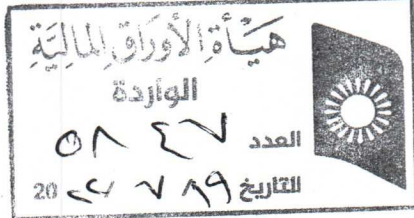 هَيْأَة الأَوْرَاق المَالِيَّة
الواردة
العدد ٥٨٤٧
التاريخ 20